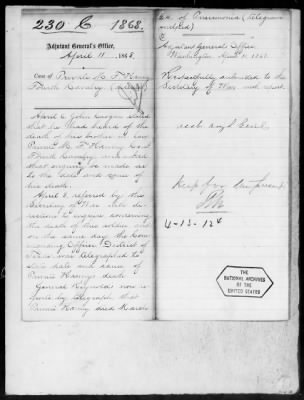 230 C 1868.
Adjutant General's Office,
April 11, 1868.
Case of Private M. F. Kenny
Fourth Cavalry
April 6, John Grogan stated
that he had heard of the
death of his brother in law
Private M. F. Kenny Co.
Fourth Cavalry, and asked
that inquiry be made as
to the date and cause of
his death.
April 8, referred by the
Secretary of War with
directions to inquire concerning
the death of this soldier and
on the same day the Com-
manding Officer District of
Texas was telegraphed to
state date and cause of
Private Kenny's death.
General Reynolds now re-
ports by telegraph, that
Private Kenny died March
of Pneumonia (telegram
enclosed)
Adjutant General's Office
Washington April 11, 1868.
Respectfully submitted to the
Secretary of War and
Keep for
4-13-
THE
NATIONAL ARCHIVES
OF THE
UNITED STATES